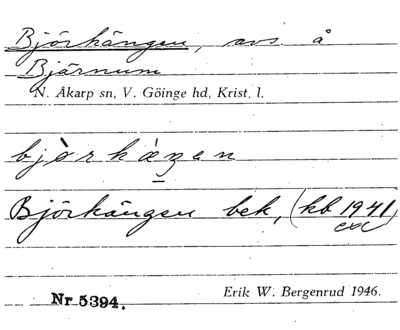 Björkängen, avs å
Bjärnum
N. Åkarp sn, V. Göinge hd, Krist. l.
björkäŋan
Björkängen bek, (kb 1941)
exc
Nr 5394.
Erik W. Bergenrud 1946.